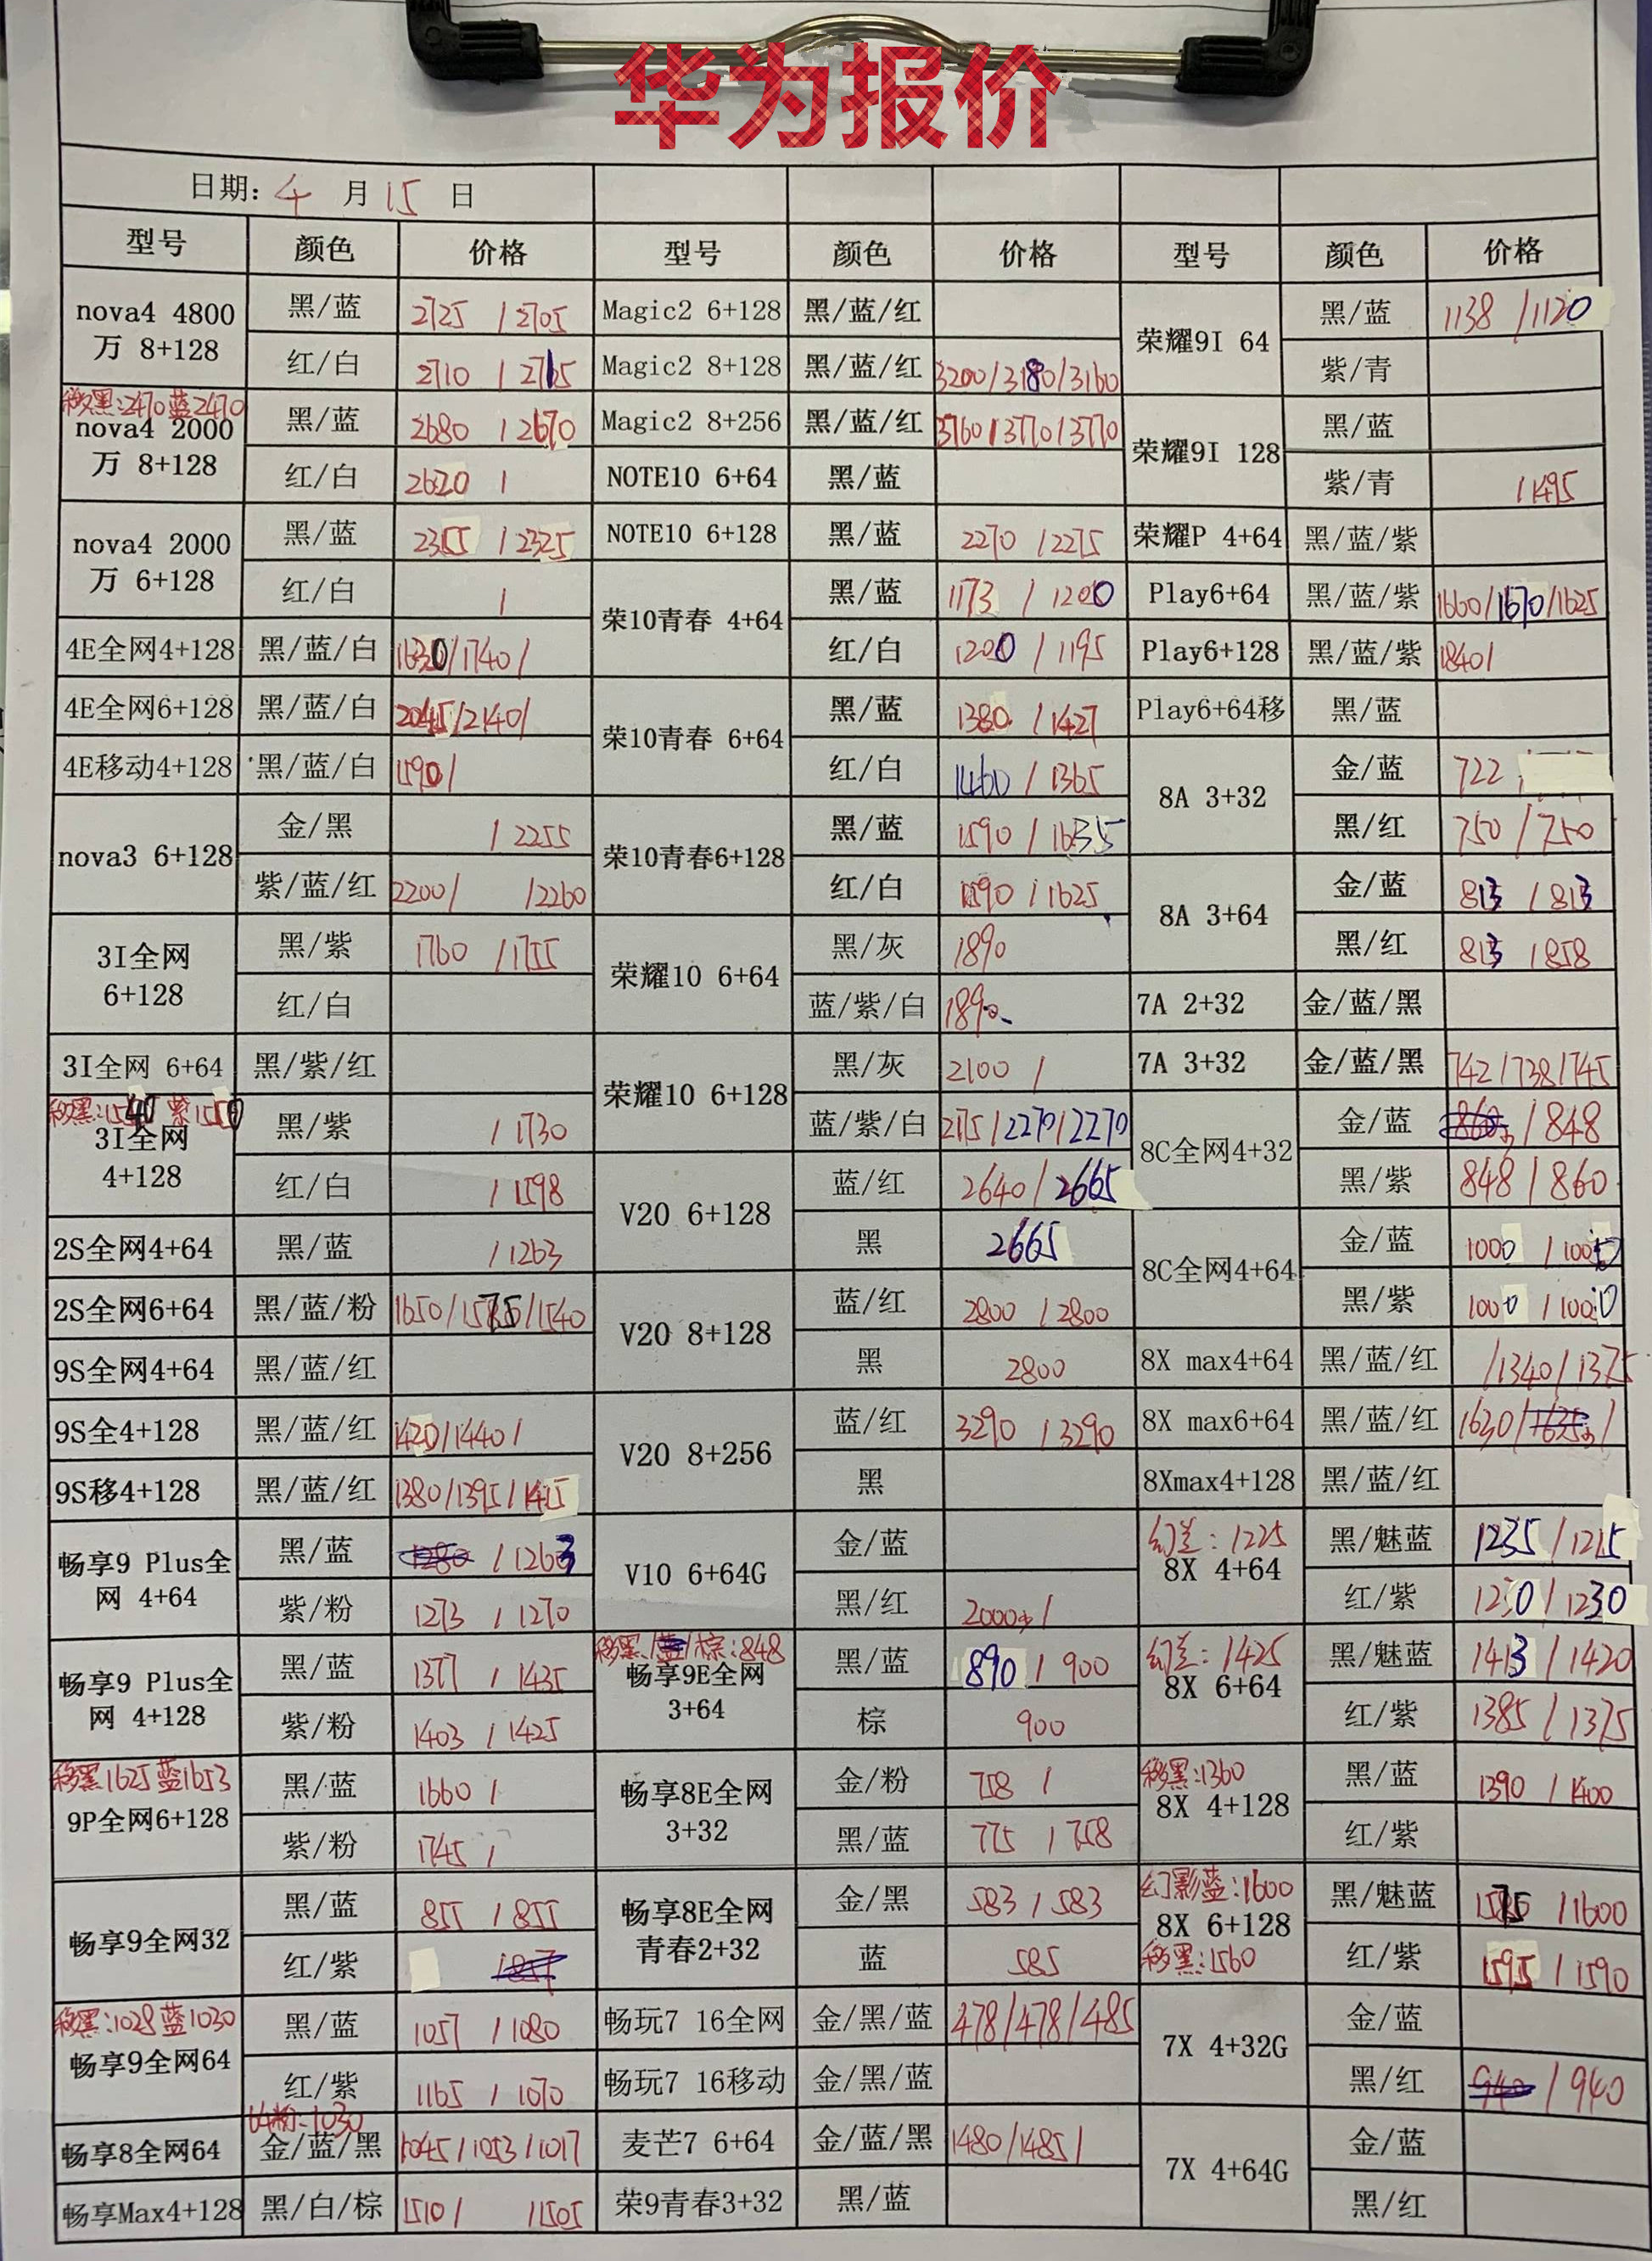 华为报价
日期: 4 月 15 日
型号 颜色 价格 型号 颜色 价格 型号 颜色 价格
nova4 4800万 8+128 黑/蓝 2725 / 2705
红/白 2710 / 2715
移黑:2470 蓝2470
nova4 2000万 8+128 黑/蓝 2680 / 2670
红/白 2620 /
nova4 2000万 6+128 黑/蓝 2355 / 2325
红/白 /
4E全网4+128 黑/蓝/白 1630/1740/
4E全网6+128 黑/蓝/白 2045/2140/
4E移动4+128 黑/蓝/白 1590/
nova3 6+128 金/黑 / 2255
紫/蓝/红 2200/ /2260
3I全网 6+128 黑/紫 1760 /1755
红/白
3I全网 6+64 黑/紫/红
移黑:1540 紫1550
3I全网 4+128 黑/紫 / 1730
红/白 / 1598
2S全网4+64 黑/蓝 / 1263
2S全网6+64 黑/蓝/粉 1650/1575/1540
9S全网4+64 黑/蓝/红
9S全4+128 黑/蓝/红 1420/1440/
9S移4+128 黑/蓝/红 1380/1395/1415
畅享9 Plus全网 4+64 黑/蓝 1280 / 1263
紫/粉 1273 / 1270
畅享9 Plus全网 4+128 黑/蓝 1377 / 1435
紫/粉 1403 / 1425
移黑1625 蓝1653
9P全网6+128 黑/蓝 1660 /
紫/粉 1745 /
畅享9全网32 黑/蓝 855 / 855
红/紫
移黑:1028 蓝1030
畅享9全网64 黑/蓝 1057 / 1080
红/紫 1165 / 1070
64粉:1030
畅享8全网64 金/蓝/黑 1045/1053/1017
畅享Max4+128 黑/白/棕 1510/ /1505
Magic2 6+128 黑/蓝/红
Magic2 8+128 黑/蓝/红 3200/3180/3160
Magic2 8+256 黑/蓝/红 3760/3770/3770
NOTE10 6+64 黑/蓝
NOTE10 6+128 黑/蓝 2270 /2275
荣10青春 4+64 黑/蓝 1173 / 1200
红/白 1200 / 1195
荣10青春 6+64 黑/蓝 1380 / 1427
红/白 1460 / 1365
荣10青春6+128 黑/蓝 1590 / 1635
红/白 1590 / 1625
荣耀10 6+64 黑/灰 1890
蓝/紫/白 1890
荣耀10 6+128 黑/灰 2100 /
蓝/紫/白 2175/2270/2270
V20 6+128 蓝/红 2640/2665
黑 2665
V20 8+128 蓝/红 2800 / 2800
黑 2800
V20 8+256 蓝/红 3290 / 3290
黑
V10 6+64G 金/蓝
黑/红 2000 /
移黑/蓝/棕:848
畅享9E全网 3+64 黑/蓝 890 / 900
棕 900
畅享8E全网 3+32 金/粉 758 /
黑/蓝 775 / 758
畅享8E全网 青春2+32 金/黑 583 / 583
蓝 585
畅玩7 16全网 金/黑/蓝 478/478/485
畅玩7 16移动 金/黑/蓝
麦芒7 6+64 金/蓝/黑 1480/1485/
荣9青春3+32 黑/蓝
荣耀9I 64 黑/蓝 1138 /1120
紫/青
荣耀9I 128 黑/蓝
紫/青 / 1495
荣耀P 4+64 黑/蓝/紫
Play6+64 黑/蓝/紫 1660/1670/1625
Play6+128 黑/蓝/紫 1840/
Play6+64移 黑/蓝
8A 3+32 金/蓝 722
黑/红 750 / 750
8A 3+64 金/蓝 813 / 813
黑/红 813 / 858
7A 2+32 金/蓝/黑
7A 3+32 金/蓝/黑 742/738/745
8C全网4+32 金/蓝 860 / 848
黑/紫 848 / 860
8C全网4+64 金/蓝 1000 / 1000
黑/紫 1000 / 1000
8X max4+64 黑/蓝/红 /1340/1375
8X max6+64 黑/蓝/红 1630/1635/
8Xmax4+128 黑/蓝/红
幻兰: 1225
8X 4+64 黑/魅蓝 1235 / 1215
红/紫 1230 / 1230
幻兰: 1425
8X 6+64 黑/魅蓝 1413 / 1420
红/紫 1385 / 1375
移黑:1360
8X 4+128 黑/蓝 1390 / 1400
红/紫
幻影蓝:1600
8X 6+128 黑/魅蓝 1575 / 1600
移黑:1560
红/紫 1595 / 1590
7X 4+32G 金/蓝
黑/红 940 / 940
7X 4+64G 金/蓝
黑/红